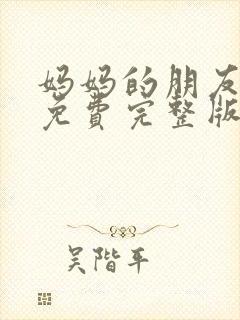 妈妈的朋友
免费完整版
吴阶平